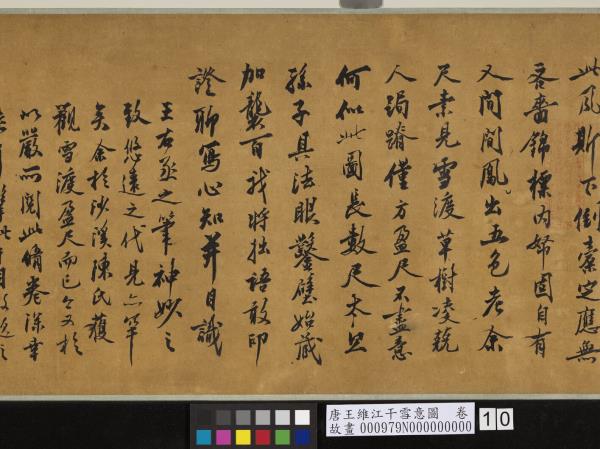 此風斯下倒橐定應無
吝嗇錦標內婦固自有
又聞間鳳出五色老余
尺素見雪渡草樹凌兢
人跼蹐僅方盈尺不盡意
何似此圖長數尺本且
孫子具法眼鑿壁始藏
加襲百我將拙語敢印
證聊寫心知并自識
王右丞之筆神妙之
致悠遠之代見亦罕
矣余於沙溪陳氏獲
觀雪渡盈尺而已今又於
以嚴而閱此脩卷深幸
唐王維江干雪意圖 卷
故畫 000979N000000000
10